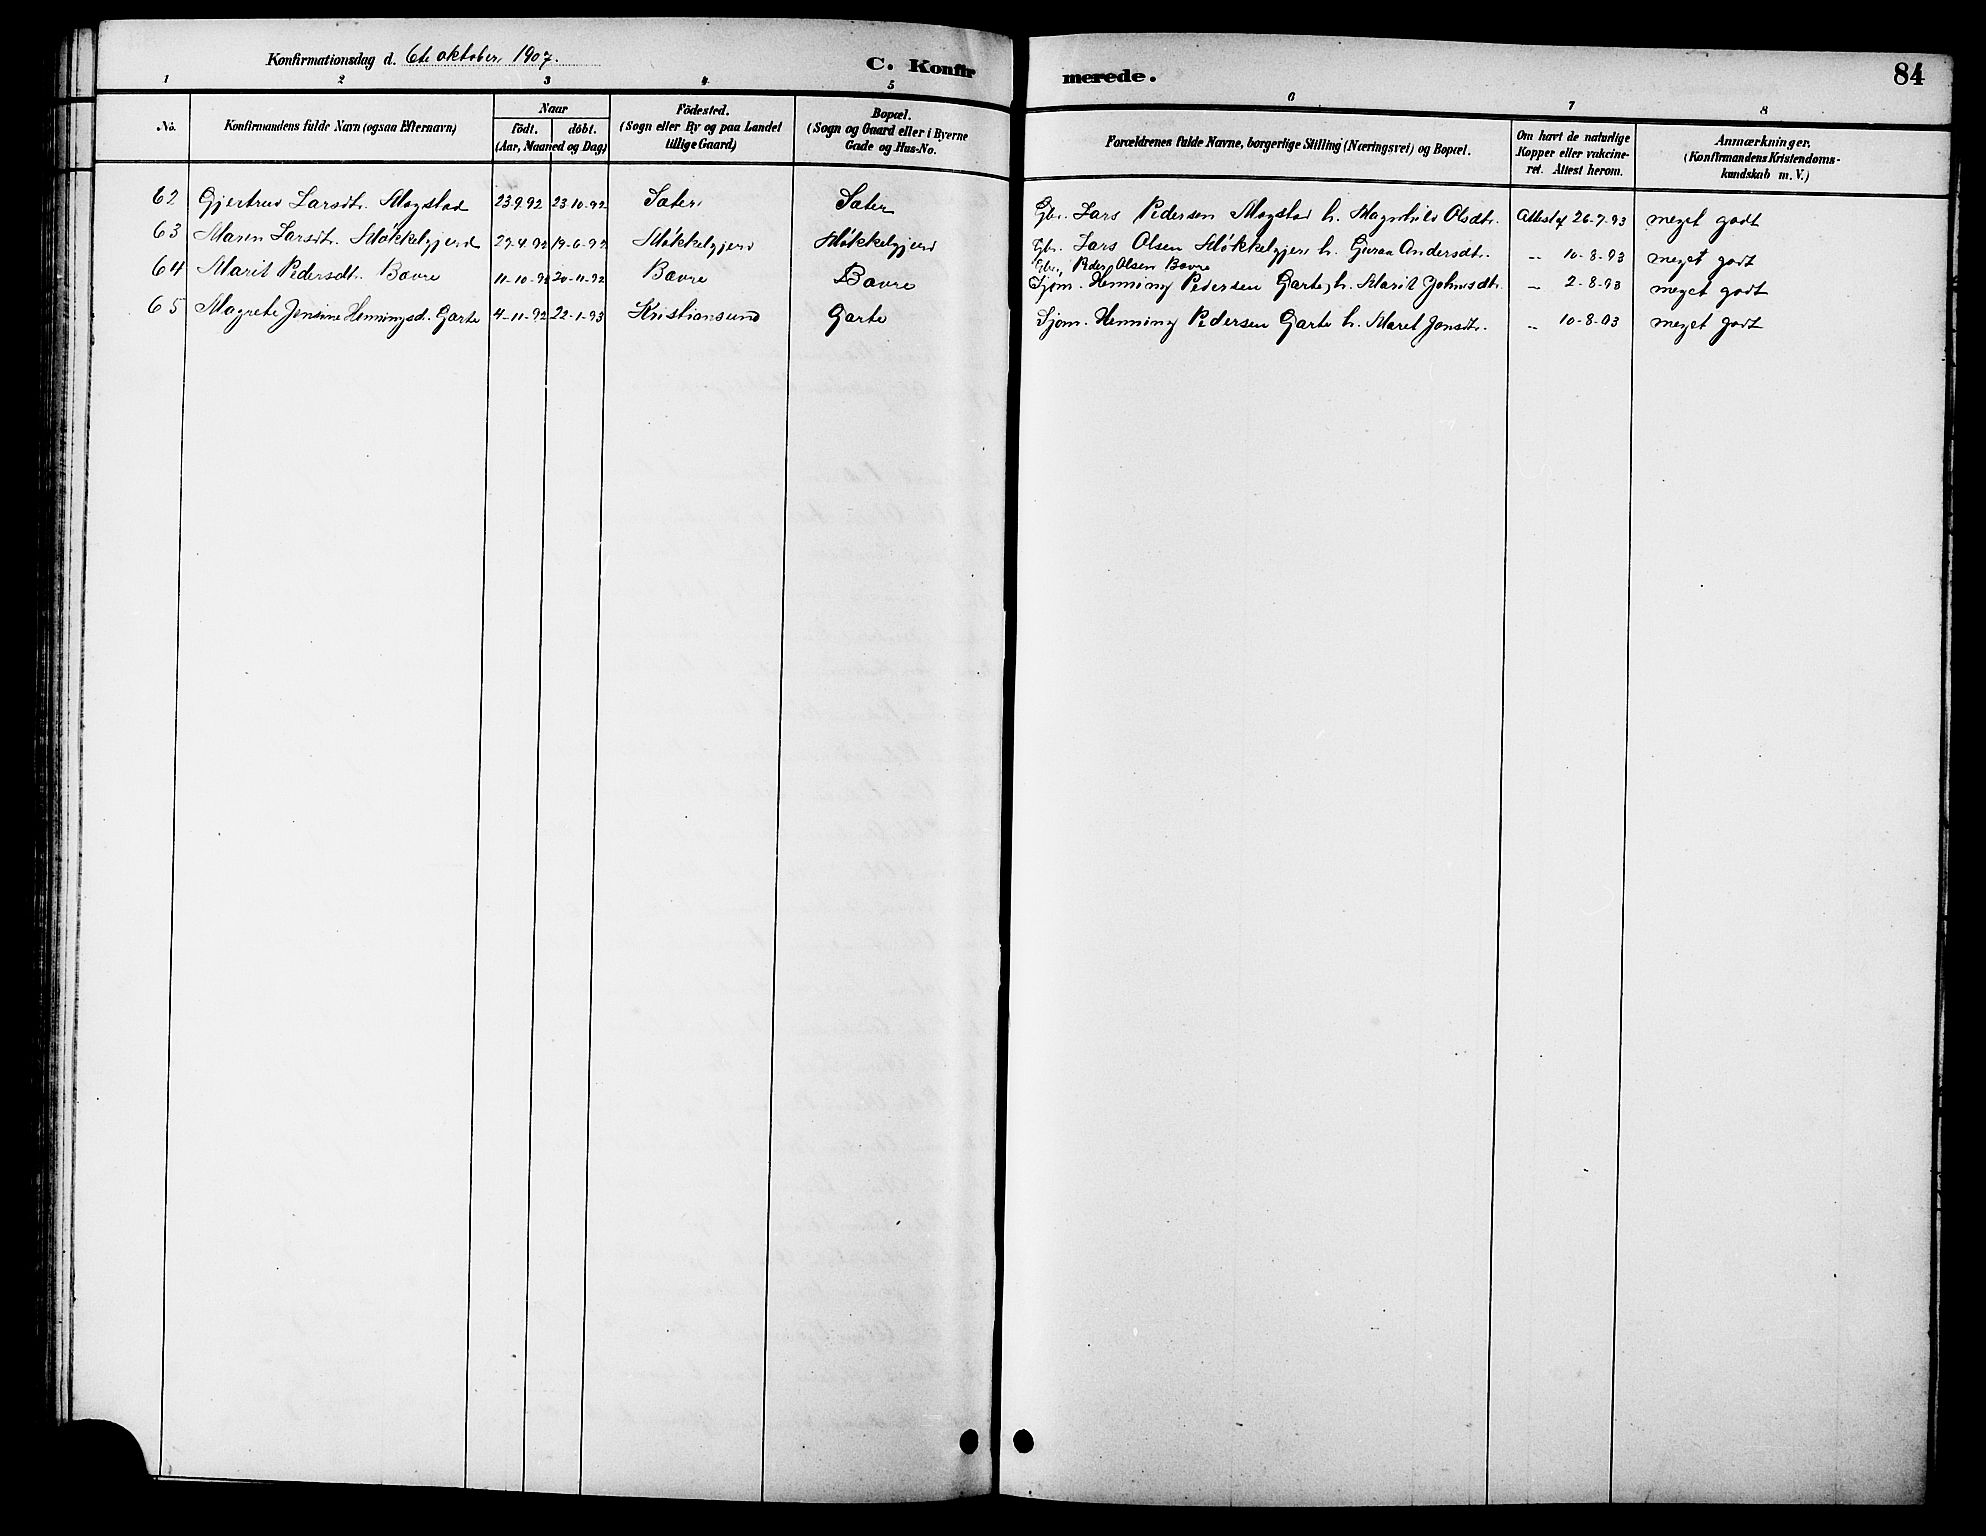 Konfirmationsdag d. 6te oktober, 1907. C. Konfir merede. 84
1 2 3 4 5 6 7 8
No. Konfirmandens fulde Navn (ogsaa Efternavn) Naar födt. döbt. (Aar, Maaned og Dag) Födested. (Sogn eller By og paa Landet tillige Gaard) Bopæl. (Sogn og Gaard eller i Byerne Gade og Hus-No. Forældrenes fulde Navne, borgerlige Stilling (Næringsvei) og Bopæl. Om havt de naturlige Kopper eller vakcineret. Attest herom. Anmærkninger. (Konfirmandens Kristendomskundskab m. V.)
62 Gjertrud Larsdtr. Mogstad 23.9.92 23-10-92 Sæter Sæter Gbr. Lars Pedersen Mogstad h. Magnhild Olsdtr. Attest af 26-7-93 meget godt
63 Maren Larsdtr. Møkkelgjerd 29-4-92 19-6-92 Møkkelgjerd Møkkelgjerd Gbr. Lars Olsen Møkkelgjerd h. Guraa Andersdtr. -"- 10-8-93 meget godt
Gbr. Peder Olsen Bøvre
64 Marit Pedersdtr. Bøvre 11-10-92 20-11-92 Bøvre Bøvre Sjøm. Henning Pedersen Garte, h. Marit Johnsdtr. -"- 2-8-93 meget godt
65 Magrete Jensine Henningsd. Garte 4-11-92 22-1-93 Kristiansund Garte Sjøm. Henning Pedersen Garte h. Maret Jonsdtr. -"- 10-8-03 meget godt